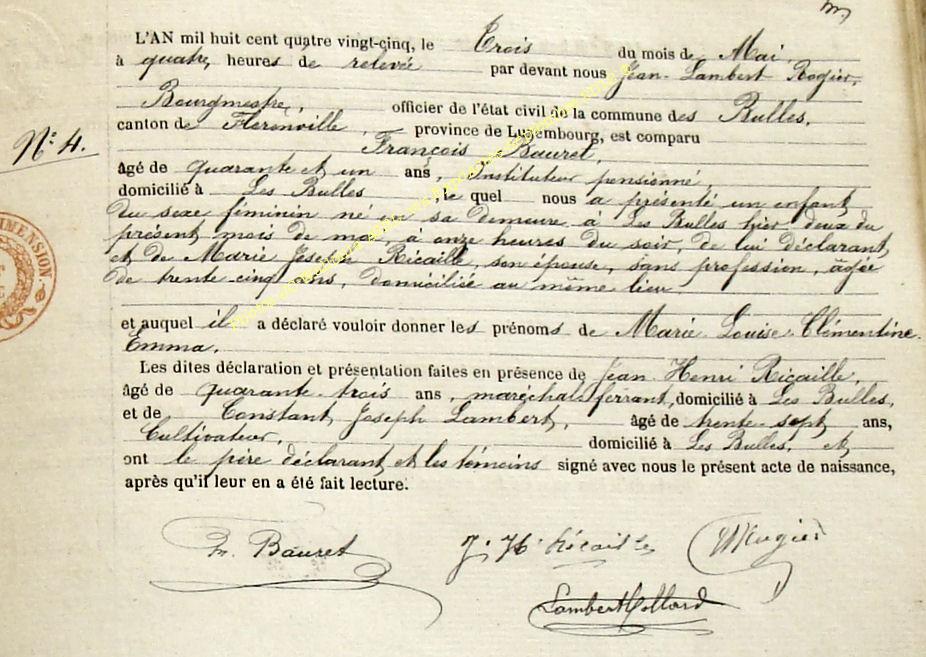 L'AN mil huit cent quatre vingt-cinq, le Trois du mois de Mai,
à quatre heures de relevée par devant nous Jean-Lambert Rogier,
Bourgmestre, officier de l'état civil de la commune des Bulles,
canton de Florenville, province de Luxembourg, est comparu
N.° 4.
François Bauret,
âgé de quarante et un ans, Instituteur pensionné,
domicilié à Les Bulles, le quel nous a présenté un enfant
du sexe féminin né en sa demeure à Les Bulles hier deux du
présent mois de mai, à onze heures du soir, de lui déclarant,
et de Marie Josephe Ricaille, son épouse, sans profession, âgée
de trente-cinq ans, domiciliée au même lieu.
et auquel il a déclaré vouloir donner les prénoms de Marie-Louise-Clémentine-
Emma.
Les dites déclaration et présentation faites en présence de Jean-Henri Ricaille,
âgé de quarante-trois ans, maréchal ferrant, domicilié à Les Bulles,
et de Constant Joseph Lambert, âgé de trente-sept ans,
Cultivateur, domicilié à Les Bulles, et
ont le père déclarant et les témoins signé avec nous le présent acte de naissance,
après qu'il leur en a été fait lecture.
Bauret J. H. Ricaille